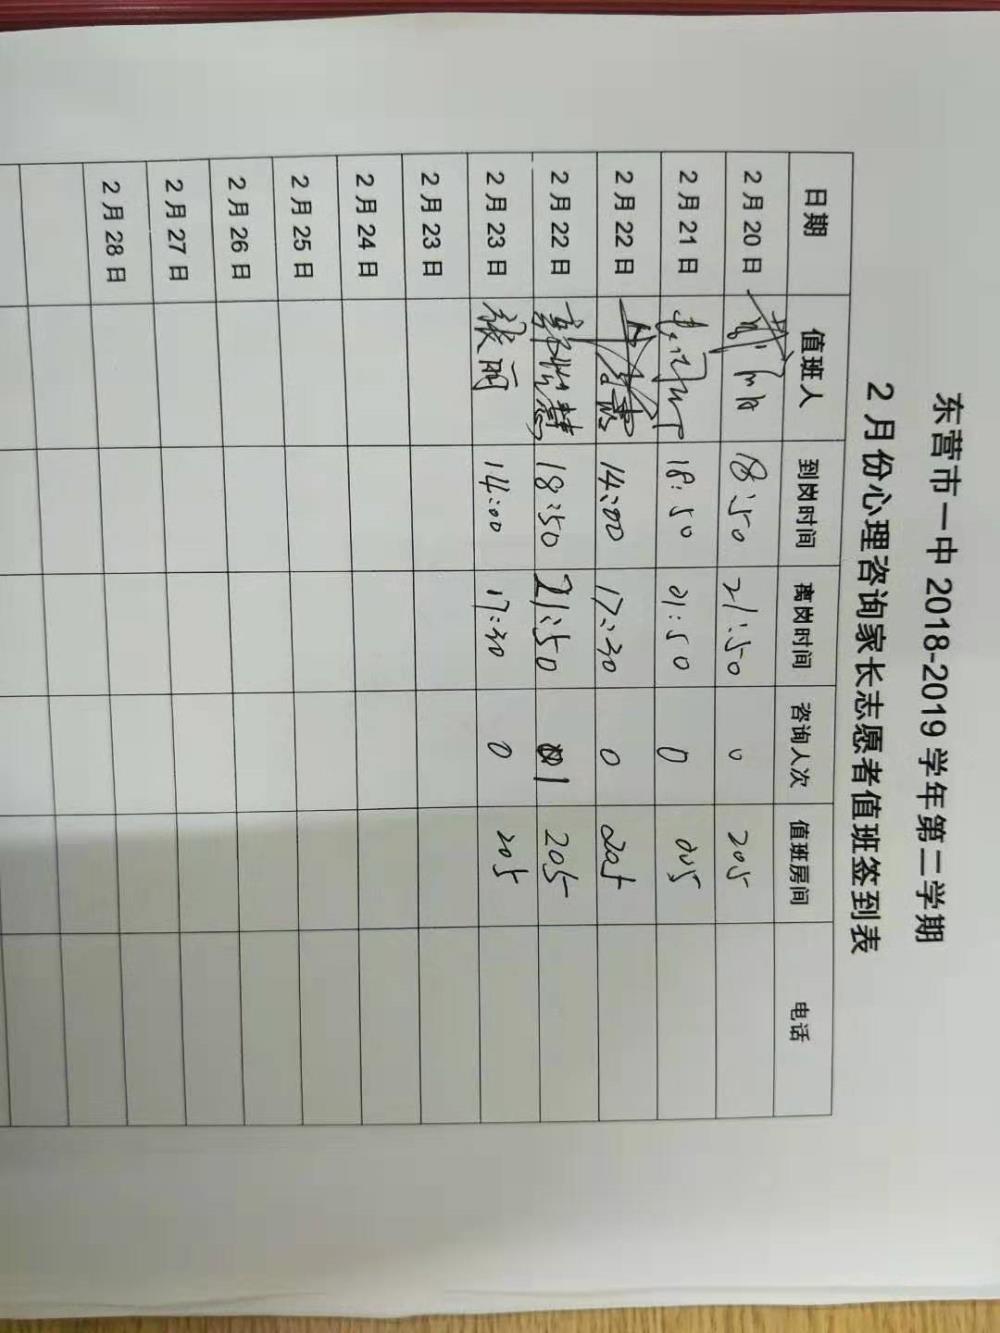 东营市一中 2018-2019 学年第二学期
2 月份心理咨询家长志愿者值班签到表
日期 值班人 到岗时间 离岗时间 咨询人次 值班房间 电话
2 月 20 日 18:50 21:50 0 205
2 月 21 日 18:50 21:50 0 205
2 月 22 日 14:00 17:30 0 205
2 月 22 日 18:50 21:50 1 205
2 月 23 日 张丽 14:00 17:30 0 205
2 月 23 日
2 月 24 日
2 月 25 日
2 月 26 日
2 月 27 日
2 月 28 日